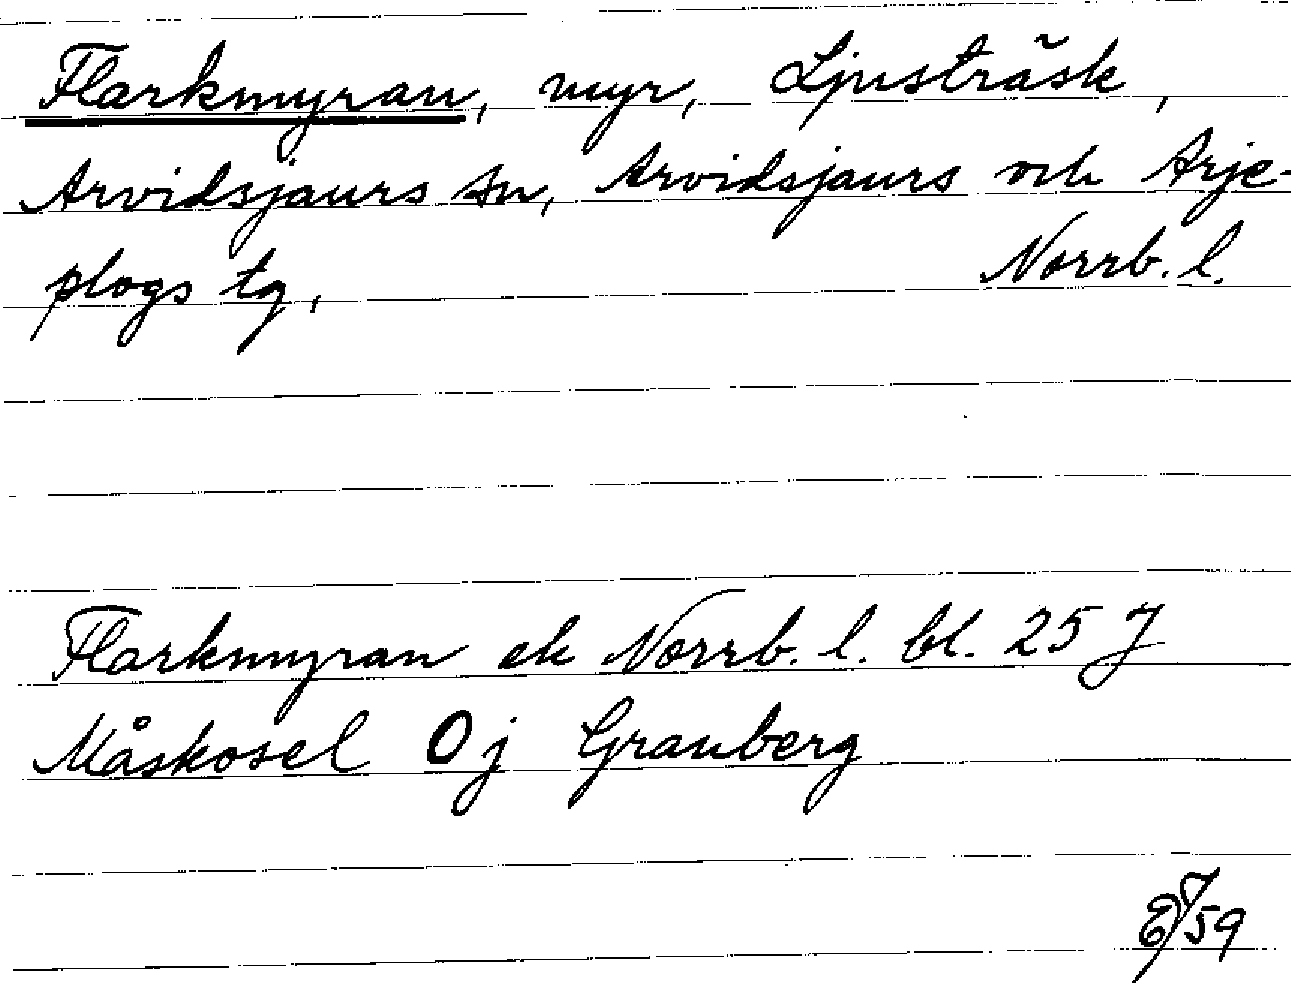 Flarkmyran, myr, Ljusträsk,
Arvidsjaurs sn, Arvidsjaurs och Arje-
plogs tg, Norrb. l.
Flarkmyran ek Norrb. l. bl. 25 J
Måskosel Oj Granberg
59